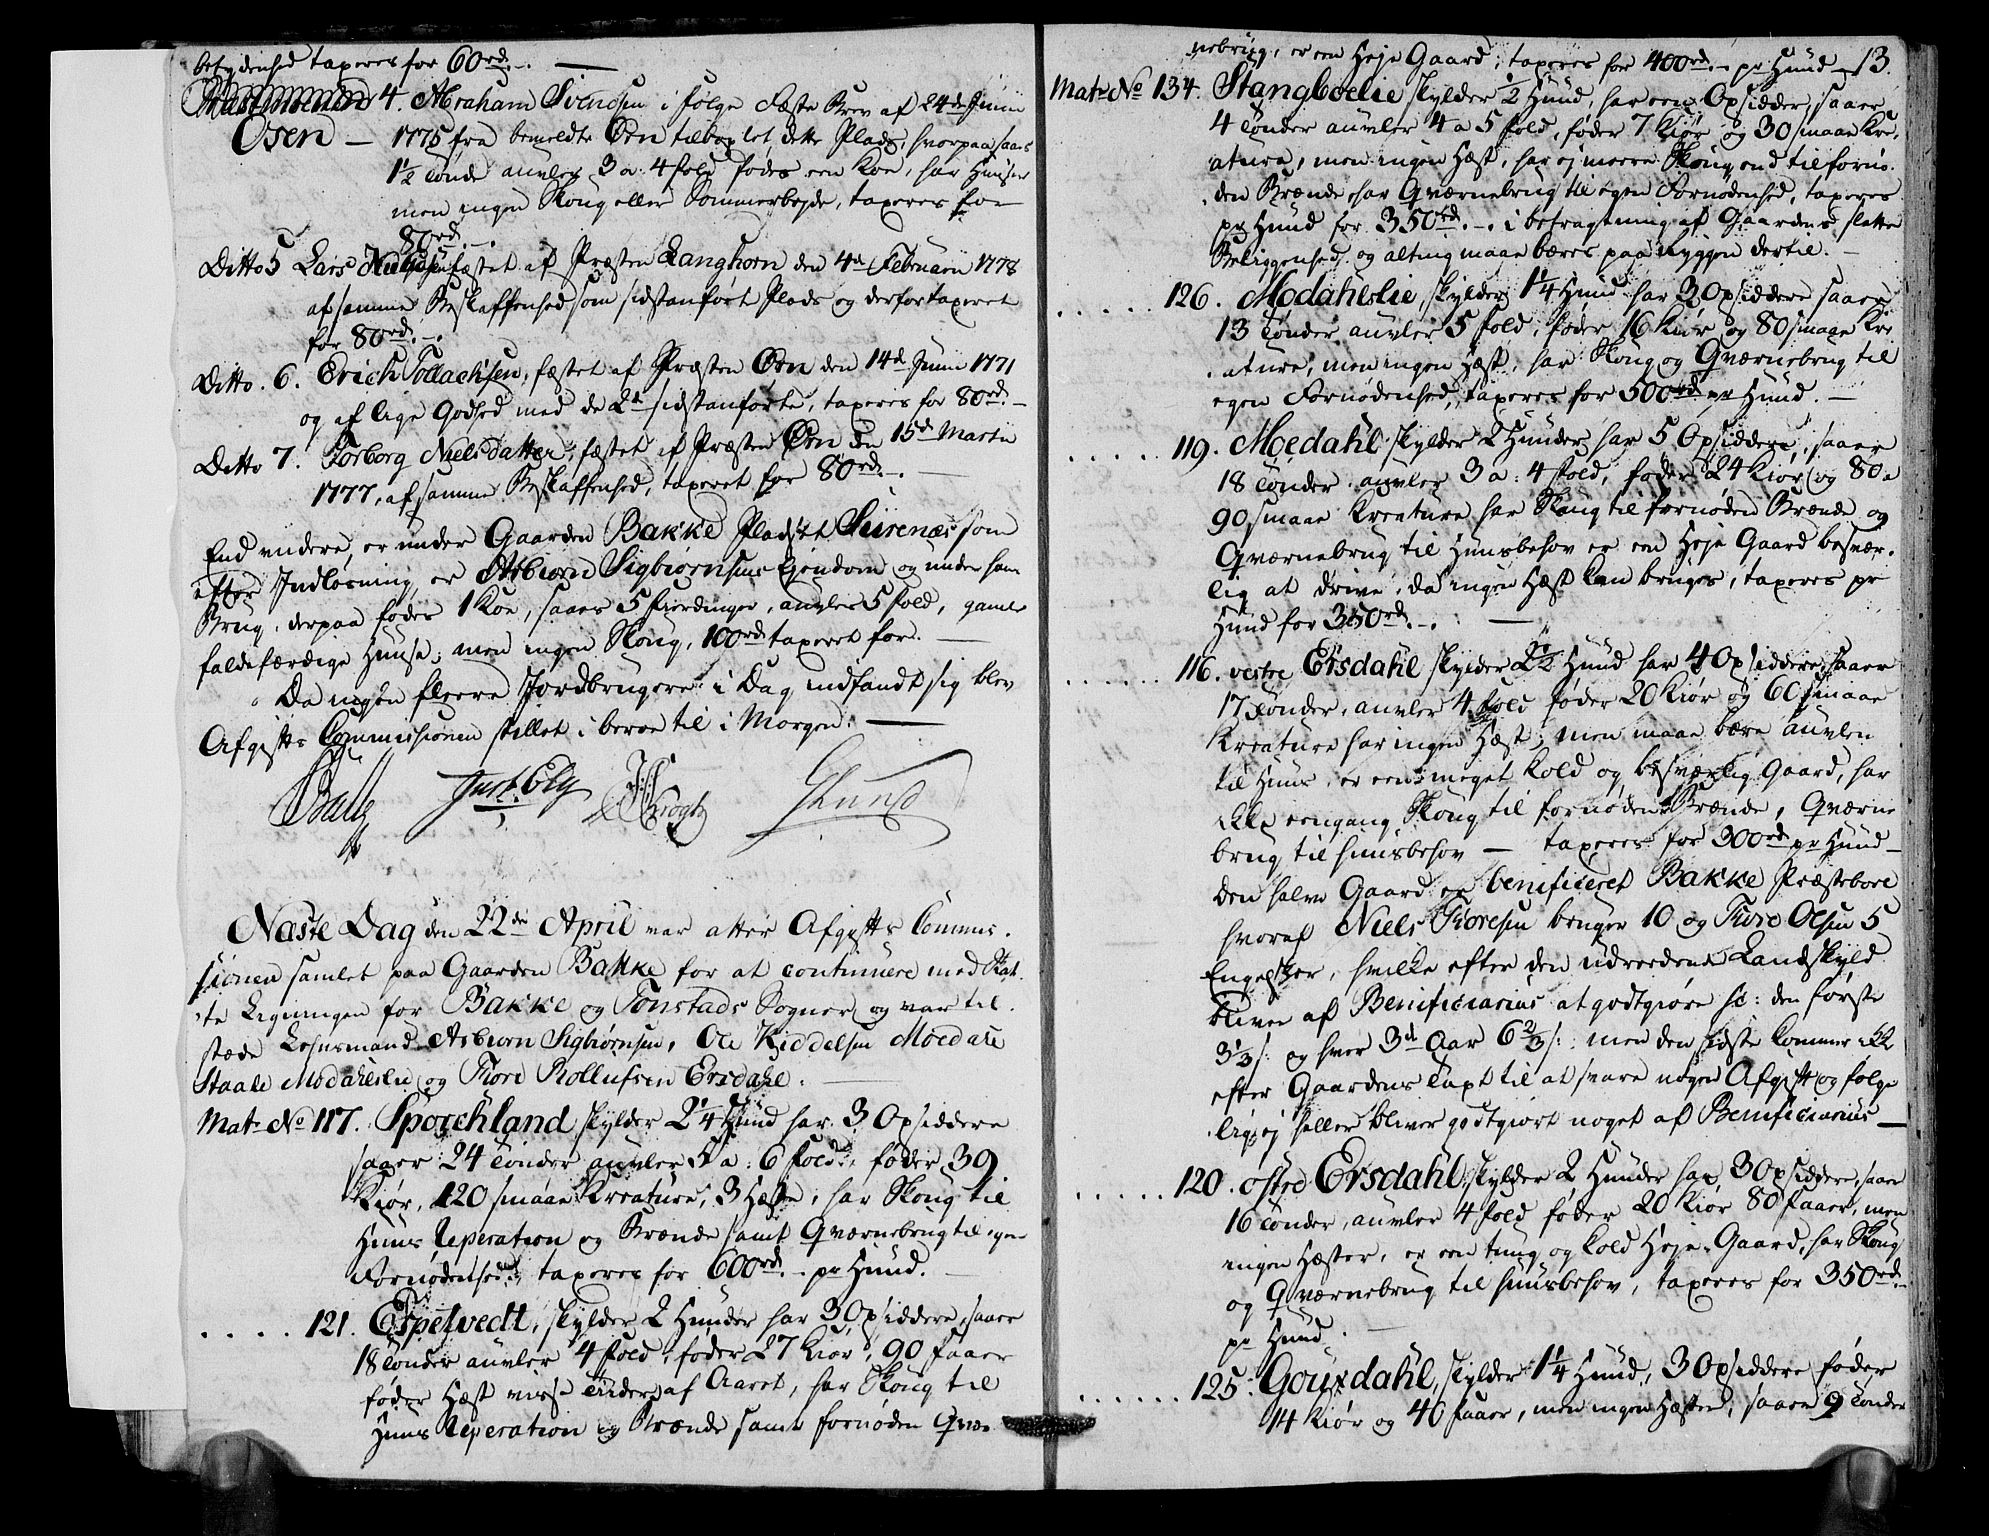 betydenhed taxeres for 60rd. —
Osen — 4. Abraham Svendsen i følge Fæste Brev af 24de Junii
1775 fra bemeldte Ørn tilboxlet dette Plads, hvorpaa saaes
1½ Tønde auvler 3 a 4 fold fødes een Koe, har Huuser
men ingen Skoug eller Sommerbeyde, taxeres for
80rd. -.
Ditto 5 Lars Nielsen fæstet af Præsten Langhorn den 4de Februarii 1778
af samme Beskaffenhed som sidstanført Plads og derfor taxeret
for 80rd. -.
Ditto. 6. Erich Tollachsen, fæstet af Præsten Ørn den 14de Junii 1771
og af lige Godhed med de 2de sidstanførte, taxeres for 80rd. —
Ditto 7. Torborg Nielsdatter, fæstet af Præsten Ørn den 15de Martii
1777, af samme Beskaffenhed, taxeret for 80rd. -. —
End videre, er under Gaarden Bakke Pladset Siirenæs som
efter Indløsning er Asbiørn Sigbiørnsens Ejendom og under hans
Brug, derpaa fødes 1 Koe, saaes 5 fierdinger, auvler 5 fold, gamle
faldefærdige Huuse, men ingen Skoug, 100rd taxeret for. —
Da ingen fleere Jordbrugere i Dag indfandt sig blev
Afgifts Commissionen stillet i beroe til i Morgen. —
Just Ely Krogh Lund
Næste Dag den 22de April var atter Afgifts Commis-
sionen samlet paa Gaarden Bakke for at continuere med Skat-
te Ligningen for Bakke og Tonstads Sogner og var til-
stæde Lehnsmand Asbiørn Sigbiørnsen, Ole Kiddelsen Moedahl
Staale Modahlslie og Tore Rollufsen Ersdahl. —
Matr No 117. Sporchland skylder 2¼ Huud har 3 Opsiddere
saaer 24 Tønder auvler 5 a: 6 fold, føder 39
Kiør, 120 smaae Kreature, 3 Hæste, har Skoug til
Huus Reperation og Brænde samt Qværnebrug til egen
Fornødenhed, taxeres for 600rd. - pr Huud. —
. . . . 121. Espetvedt, skylder 2 Huuder har 3 Opsiddere, saaer
18 Tønder auvler 4 fold, føder 27 Kiør, 90 faaer
føder Hæst visse Tiider af Aaret, har Skoug til
Huus Reperation og Brænde samt fornøden Qvær-
nebrug, er een Heje Gaard, taxeres for 400rd. - pr Huud — 13.
Matr No 134. Stangboelie skylder ½ Huud, har een Opsidder, saaer
4 Tønder auvler 4 a 5 fold, føder 7 Kiør og 30 smaae Kre-
ature, men ingen Hæst, har ej meere Skoug end til fornø-
den Brænde, har Qværnebrug til egen Fornødenhed, taxeres
pr Huud for 350rd. -. i betragtning af Gaardens slette
Beliggenhed og alting maae bæres paa Ryggen dertil. —
. . . . . 126. Modahlslie, skylder 1¼ Huud har 3 Opsiddere saaer
13 Tønder auvler 5 fold, føder 16 Kiør og 80 smaae Kre
ature, men ingen Hæst, har Skoug og Qværnebrug til
egen Fornødenhed, taxeres for 500rd pr Huud. —
. . . . . 119. Moedahl skylder 2 Huuder har 5 Opsiddere, saaer
18 Tønder auvler 3 a: 4 fold, føder 24 Kiør og 80 a
90 smaae Kreature har Skoug til fornøden Brænde og
Qværnebrug til Huusbehov er een Heje Gaard besvær-
lig at drive, da ingen Hæst kan bruges, taxeres pr
Huud for 350rd. -. —
. . . . . . 116. vestre Ersdahl skylder 2½ Huud har 4 Opsiddere, saaer
17 Tønder, auvler 4 fold føder 20 Kiør og 60 smaae
Kreature har ingen Hæst, men maae bære auvlen
til Huus, er een meget kold og besværlig Gaard, har
ikke eengang Skoug til fornøden Brænde, Qværne
brug til huusbehov — taxeres for 300rd pr Huud —
den halve Gaard er benificeret Bakke Præsteboel
hvoraf Niels Toresen bruger 10 og Tore Olsen 5
Engelsker, hvilke efter den udreedende Landskyld
bliver af Benificiarius at godtgiøre sc: den første
3⅓ s: og hver 3de Aar 6⅔ s: men den sidste kommer ikke
efter Gaardens Taxt til at svare nogen Afgift og følge
lig ej heller bliver godtgiort noget af Benificiarius —
. . . . . . 120. østre Ersdahl, skylder 2 Huuder har 3 Opsiddere, saaer
16 Tønder, auvler 4 fold føder 20 Kiør 80 faaer, men
ingen Hæster, er een tung og kold Heje Gaard, har Skoug
og Qværnebrug til huusbehov, taxeres for 350rd. —
pr Huud. —
. . . . . . 125. Gousdahl, skylder 1¼ Huud, 3 Opsiddere føder
14 Kiør og 40 faaer, men ingen Hæster, saaer 9 Tønder